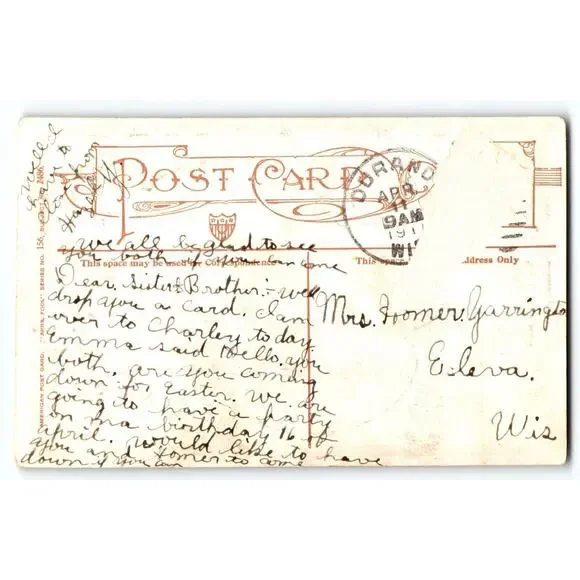 POST CARD
DURAND
APR
11
9AM
1911
WIS
We all be glad to see
you both if you can come
This space may be used for Correspondence
This space
ddress Only
Dear Sister & Brother:- Well
drop you a card. I am
over to Charley to day
Emma said Hello. you
both. are you coming
down for Easter. we are
going to have a party
on ma birthday 16 of
April. Would like to have
you and Homer to come
down if you can
Mrs. Homer Yarrington
Eleva.
Wis
AMERICAN POST CARD. SERIES NO. 156.
from